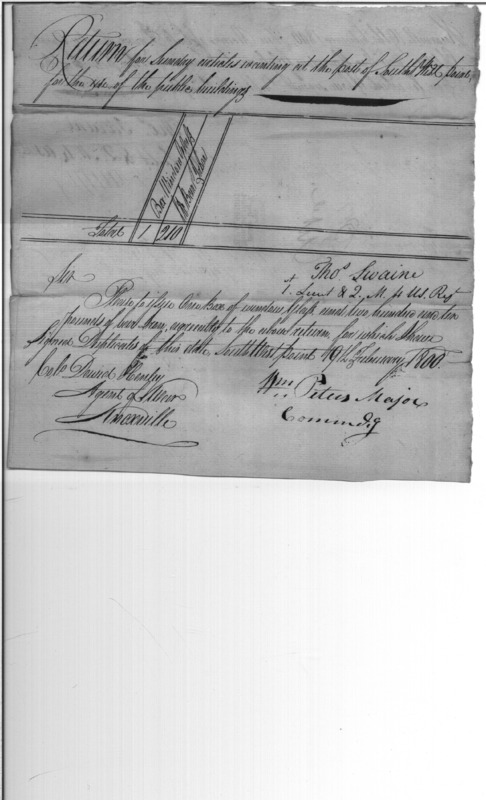 Return for Sundry articles wanting at the post of South West point,
for the use of the public buildings
Box Window Glass
lb Bar Iron
Total 1 210
Sir
Thos Swaine
1. Lieut & Q. M. Regt
Please to issue One Box of window Glass and two hundred and ten
pounds of Bar Iron, agreeably to the above return, for which I have
signed Duplicates of this date, South West point 19th February 1800.
Colo David Henley
Agent of War
Knoxville
Wm Peters Major
Commdg